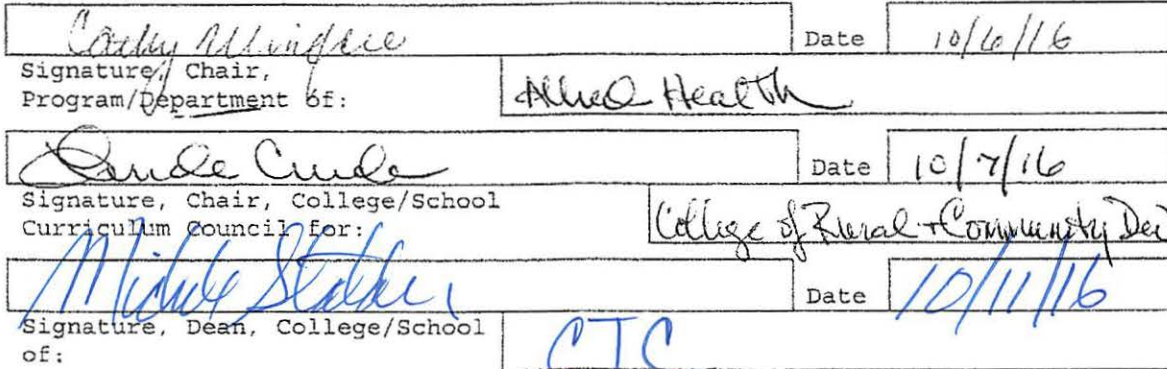 Cathy Date 10/6/16
Signature, Chair,
Program/Department of: Allied Health
Date 10/7/16
Signature, Chair, College/School
Curriculum Council for: College of Rural + Community Dev
Date 10/11/16
Signature, Dean, College/School
of: CTC